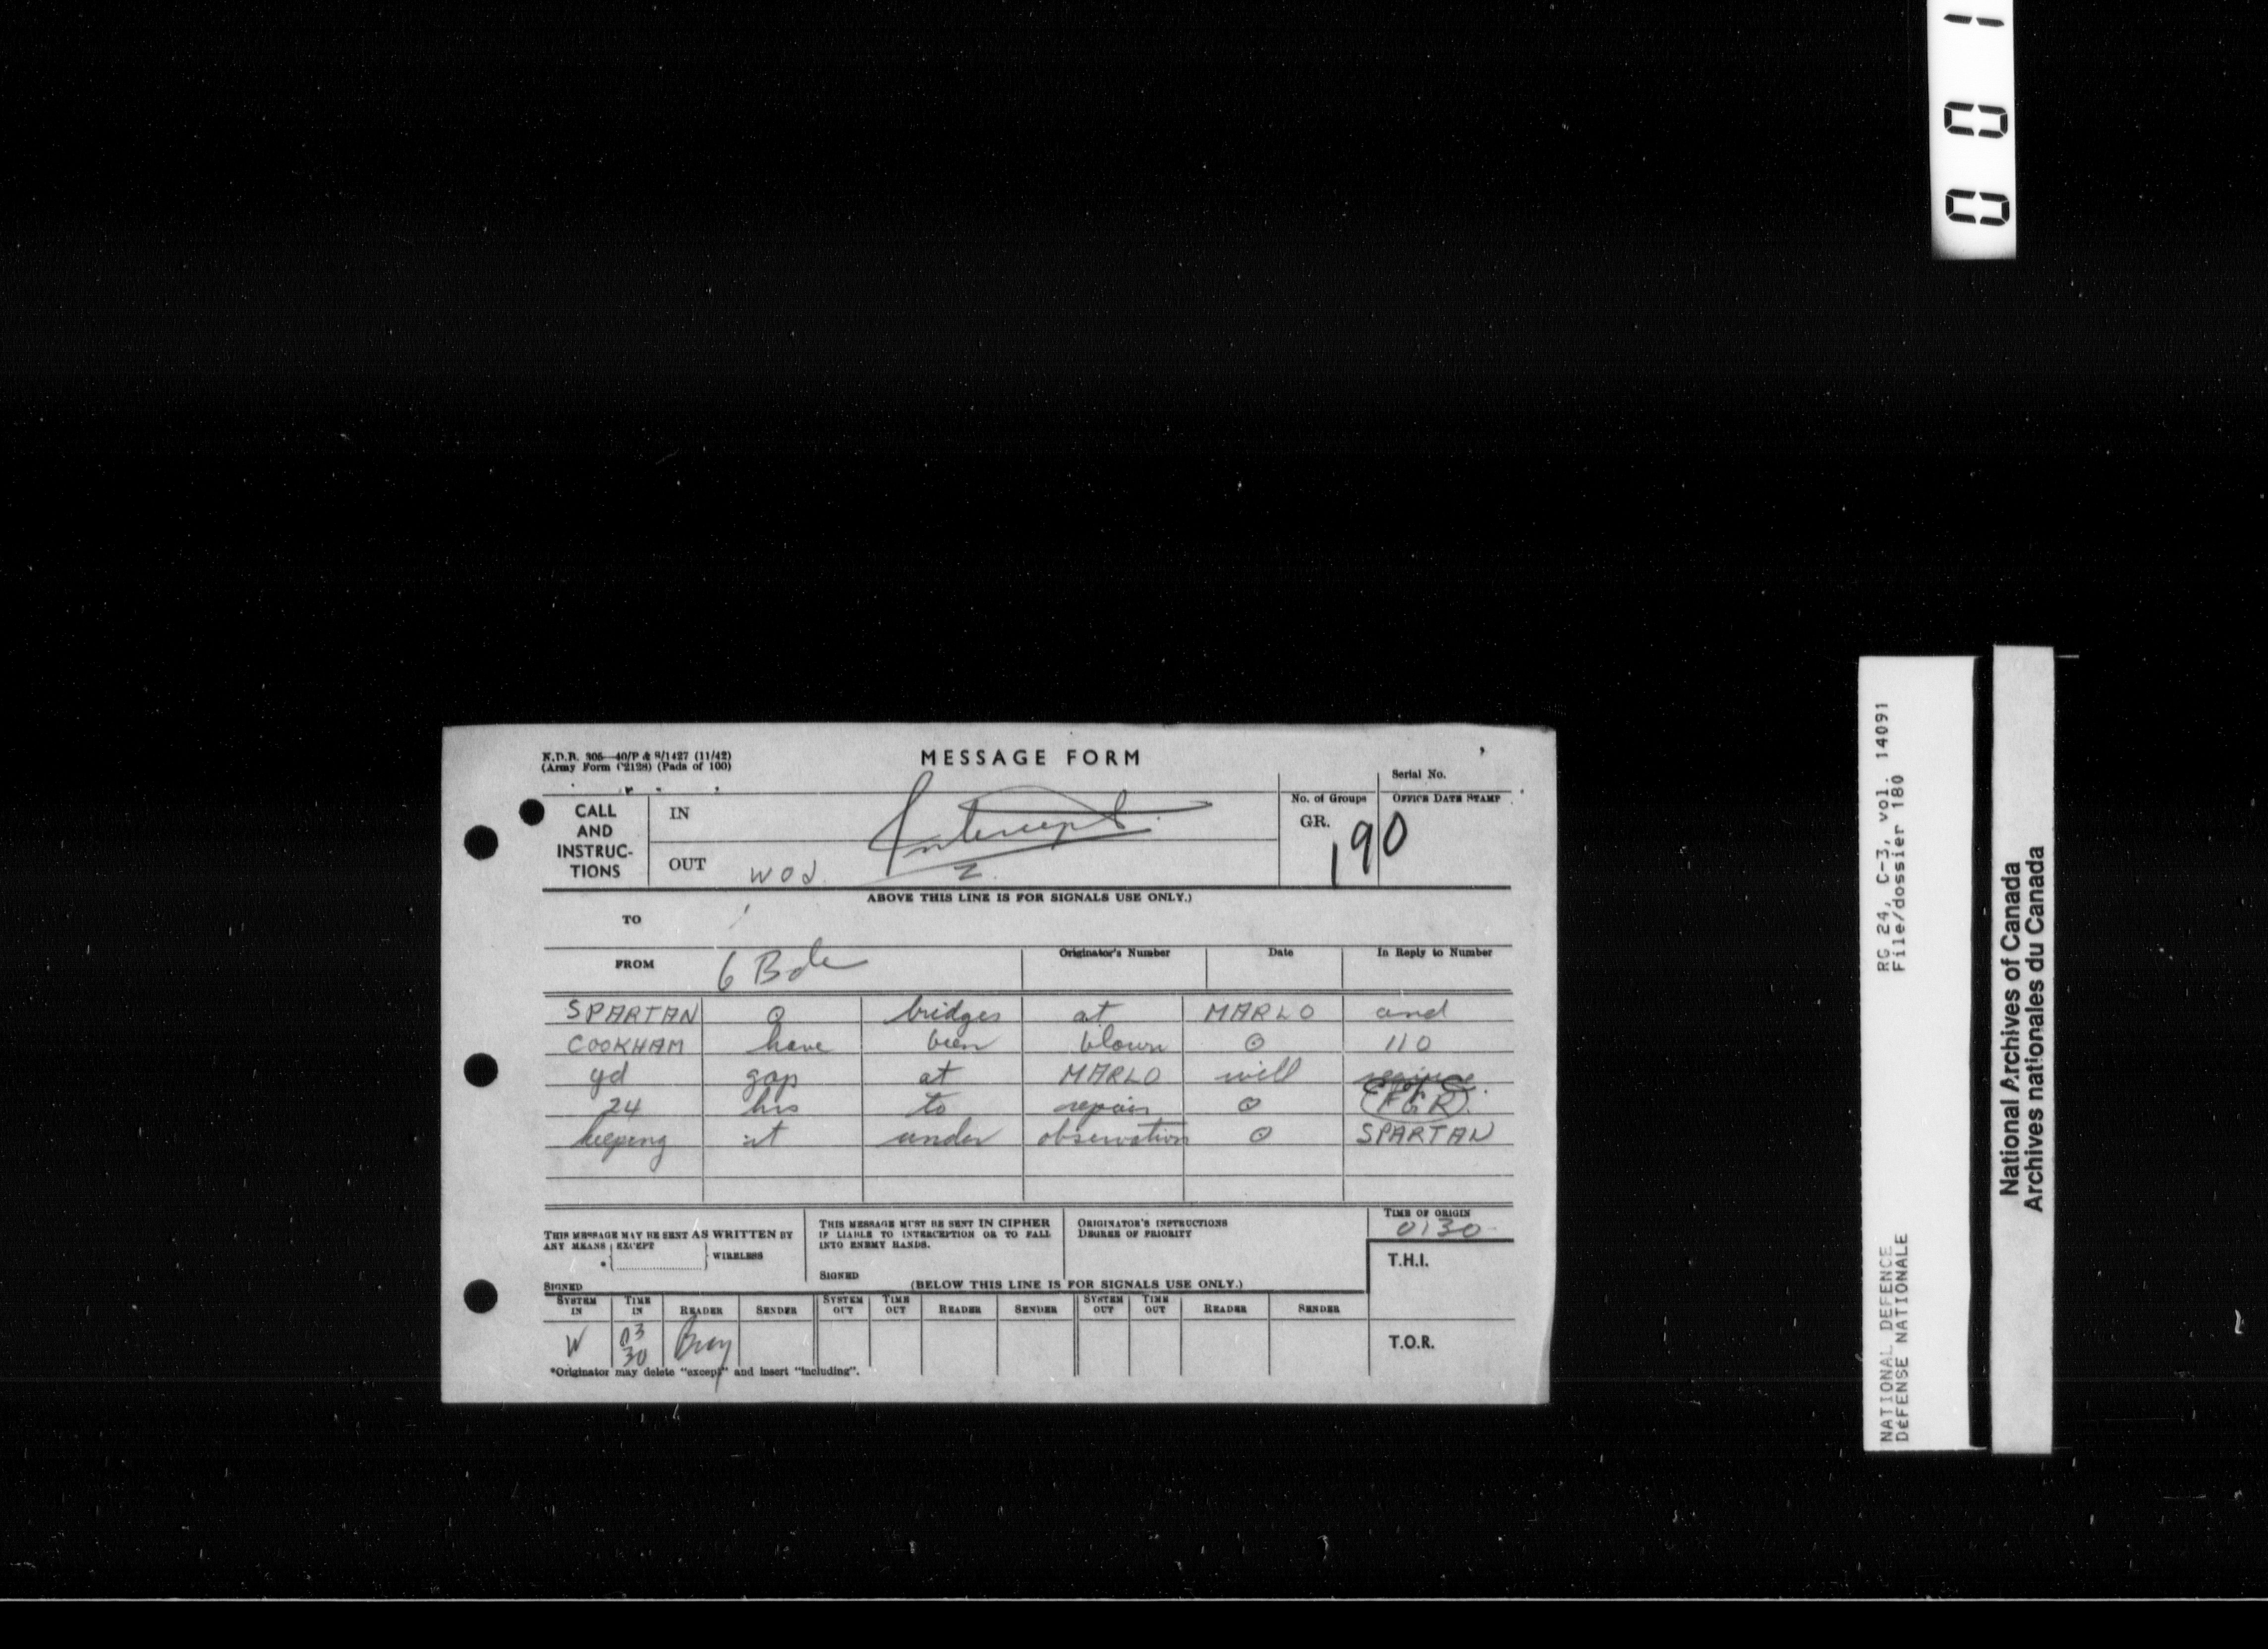 001
N.D.B. 306—40/P & S/1427 (11/42)
(Army Form C2128) (Pads of 100)
MESSAGE FORM
Serial No.
CALL AND INSTRUC- TIONS
IN
Intercept
No. of Groups
GR.
OFFICE DATE STAMP
190
OUT
2.
ABOVE THIS LINE IS FOR SIGNALS USE ONLY.)
TO
FROM
6 Bde
Originator's Number
Date
In Reply to Number
SPARTAN ⊙ bridges at MARLO and
COOKHAM have been blown ⊙ 110
yd gap at MARLO will require
24 hrs to repair ⊙ (FGR).
keeping it under observation ⊙ SPARTAN
THIS MESSAGE MAY BE SENT AS WRITTEN BY
ANY MEANS EXCEPT
* WIRELESS
SIGNED
THIS MESSAGE MUST BE SENT IN CIPHER
IF LIABLE TO INTERCEPTION OR TO FALL
INTO ENEMY HANDS.
SIGNED
ORIGINATOR'S INSTRUCTIONS
DEGREE OF PRIORITY
TIME OF ORIGIN
0130
T.H.I.
(BELOW THIS LINE IS FOR SIGNALS USE ONLY.)
SYSTEM IN TIME IN READER SENDER SYSTEM OUT TIME OUT READER SENDER SYSTEM OUT TIME OUT READER SENDER
W 03 30 Bray
T.O.R.
*Originator may delete "except" and insert "including".
RG 24, C-3, vol. 14091
File/dossier 180
NATIONAL DEFENCE
DéFENSE NATIONALE
National Archives of Canada
Archives nationales du Canada